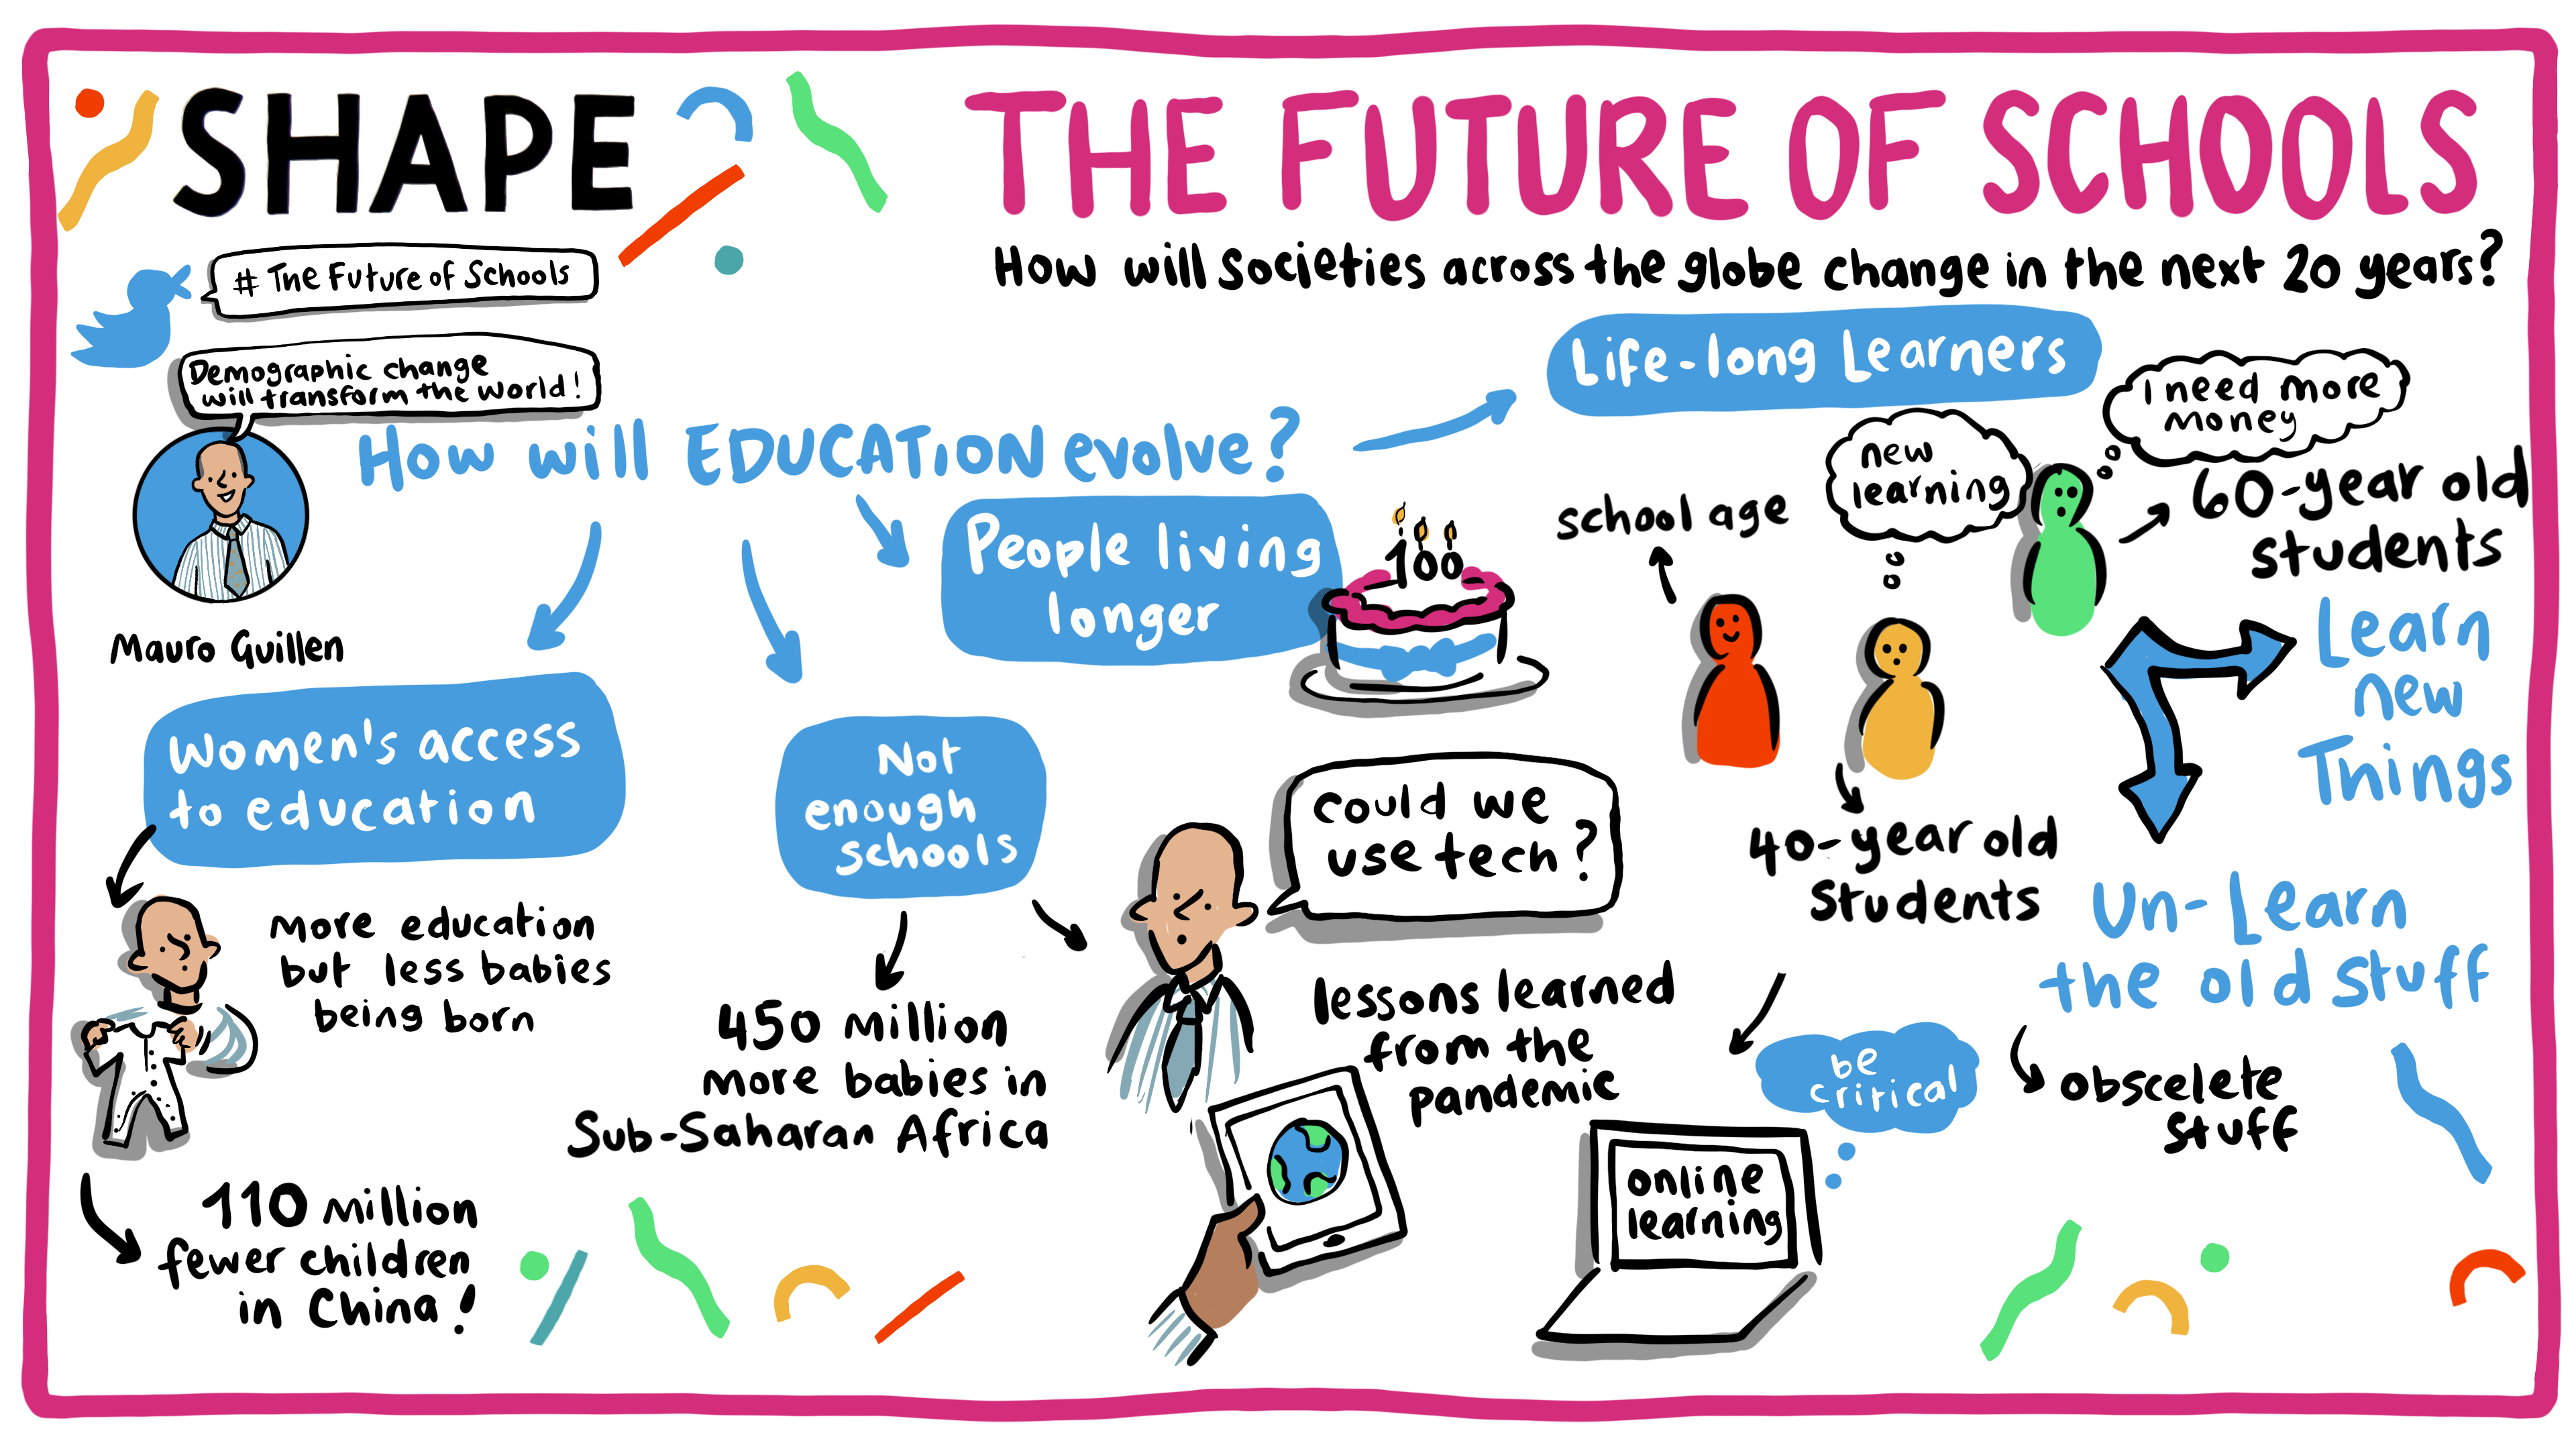 SHAPE
THE FUTURE OF SCHOOLS
How will societies across the globe change in the next 20 years?
# The Future of Schools
Demographic change
will transform the world!
Mauro Guillen
How will EDUCATION evolve?
Women's access
to education
more education
but less babies
being born
110 million
fewer children
in China!
Not
enough
schools
450 million
more babies in
Sub-Saharan Africa
could we
use tech?
lessons learned
from the
pandemic
online
learning
be
critical
People living
longer
100
Life-long Learners
school age
new
learning
40-year old
students
I need more
money
60-year old
students
Learn
new
Things
Un-Learn
the old stuff
obscelete
stuff